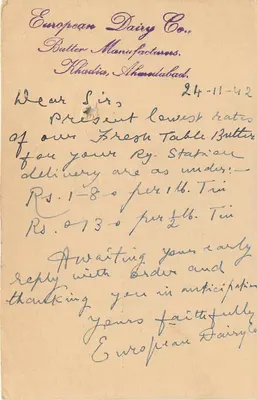 European Dairy Co.,
Butter Manufacturers.
Khadia, Ahmedabad.
24-11-42
Dear Sirs
Present lowest rates
of our Fresh Table Butter
for your Ry. Station
delivery are as under:-
Rs. 1-8-0 per 1 lb. Tin
Rs. 0-13-0 per ½ lb. Tin
Awaiting your early
reply with order and
thanking you in anticipation
Yours faithfully
European Dairy Co